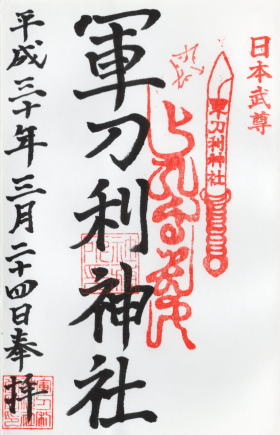 日本武尊
軍刀利神社
軍刀利神社
平成三十年三月二十四日奉拝